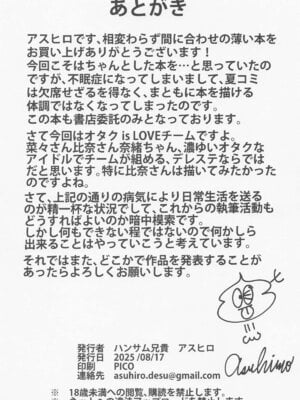 あとがき
アスヒロです、相変わらず間に合わせの薄い本を
お買い上げありがとうございます！
今回こそはちゃんとした本を…と思っていたの
ですが、不眠症になってしまいまして、夏コミ
は欠席せざるを得なく、まともに本を描ける
体調ではなくなってしまっております。
この本も書店委託のみとなっております。
さて今回はオタク is LOVEチームですよ。
菜々さん比奈さん奈緒ちゃん、濃ゆいオタクな
アイドルでチームが組める、デレステならでは
だと思います。特に比奈さんは描いてみたかった
のですよね。
さて、上記の通りの病気により日常生活を送る
のが精一杯な状況でして、これからの執筆活動も
どうすればよいのか暗中模索です。
しかし何もできない程ではないので何かしら
出来ることはやっていこうと考えています。
それではまた、どこかで作品を発表することが
あったらよろしくお願いします。
発行者 ハンサム兄貴 アスヒロ
発行日 2025/08/17
印刷 PICO
連絡先 asuhiro.desu@gmail.com
Asuhiro
※ 18歳未満への閲覧、購読を禁止します。